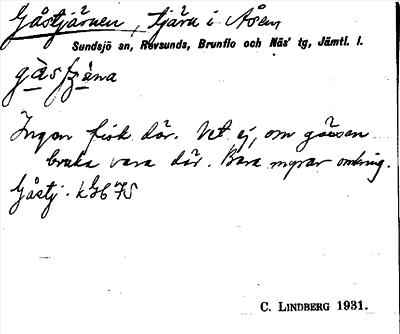 Gåstjärnen, tjärn i Åsen,
Sundsjö sn, Revsunds, Brunflo och Näs' tg, Jämtl. l.
Ingen fisk där. Vet ej, om gässen
bruka vara där. Bara myrar omkring.
Gåstj.
C. LINDBERG 1931.